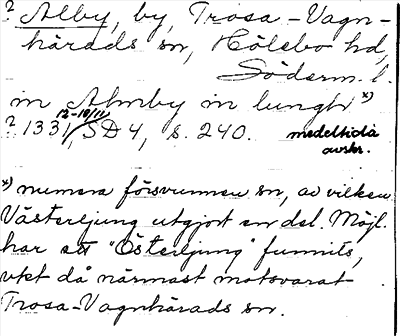 ? Alby, by, Trosa-Vagn-
härads sn, Hölebo hd,
Söderm. l.
in Almby in lunghi x)
12-18/11
? 1331, SD 4, s. 240. medeltida
avskr.
x) numera försvunnen sn, av vilken
Västerljung utgjort en del. Möjl.
har ett "Österljung" funnits,
vkt då närmast motsvarat
Trosa-Vagnhärads sn.